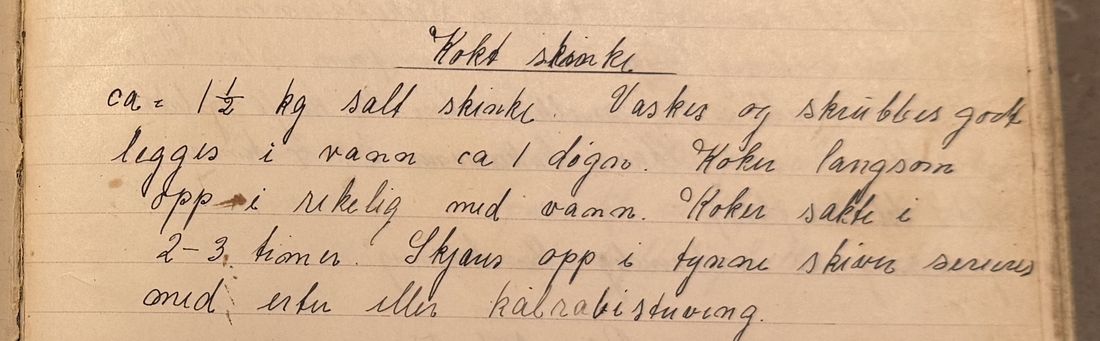 Kokt skinke
ca = 1 1/2 kg salt skinke. Vaskes og skrubbes godt
legges i vann ca 1 døgn. Koker langsom
opp i rikelig med vann. Koker sakte i
2-3 timer. Skjæres opp i tynne skiver serveres
med erter eller kålrabistuving.